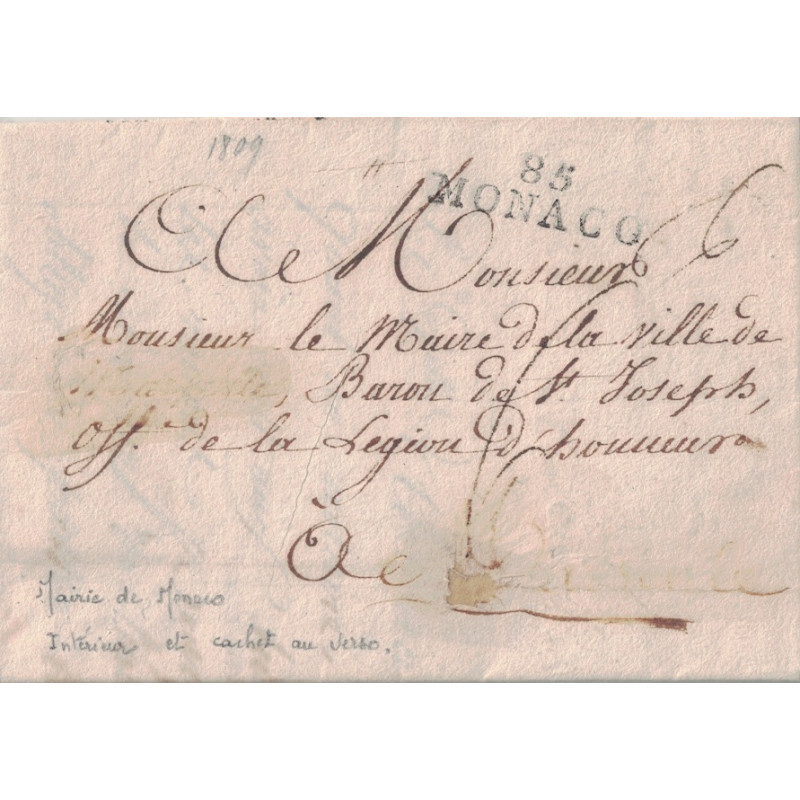 1809
85
MONACO
A Monsieur
Monsieur le Maire de la ville de
Baron de St. Joseph,
Off.er de la Légion d'honneur
À
Mairie de Monaco
Intérieur et cachet au verso.